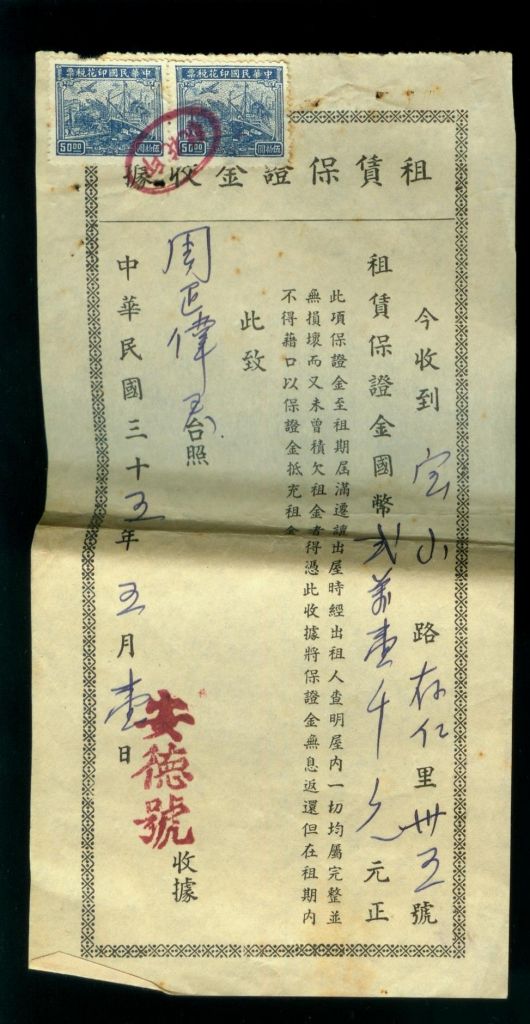 中華民國印花稅票
伍拾圓
50.00
中華民國印花稅票
伍拾圓
50.00
租賃保證金收據
今收到宝山路存仁里卅五號
租賃保證金國幣弍萬壹千元正
此項保證金至租期屆滿遷讓出屋時經出租人查明屋內一切均屬完整並
無損壞而又未曾積欠租金者得憑此收據將保證金無息返還但在租期內
不得藉口以保證金抵充租金
此致
周 偉 台照
中華民國三十五年五月壹日
安德號
收據